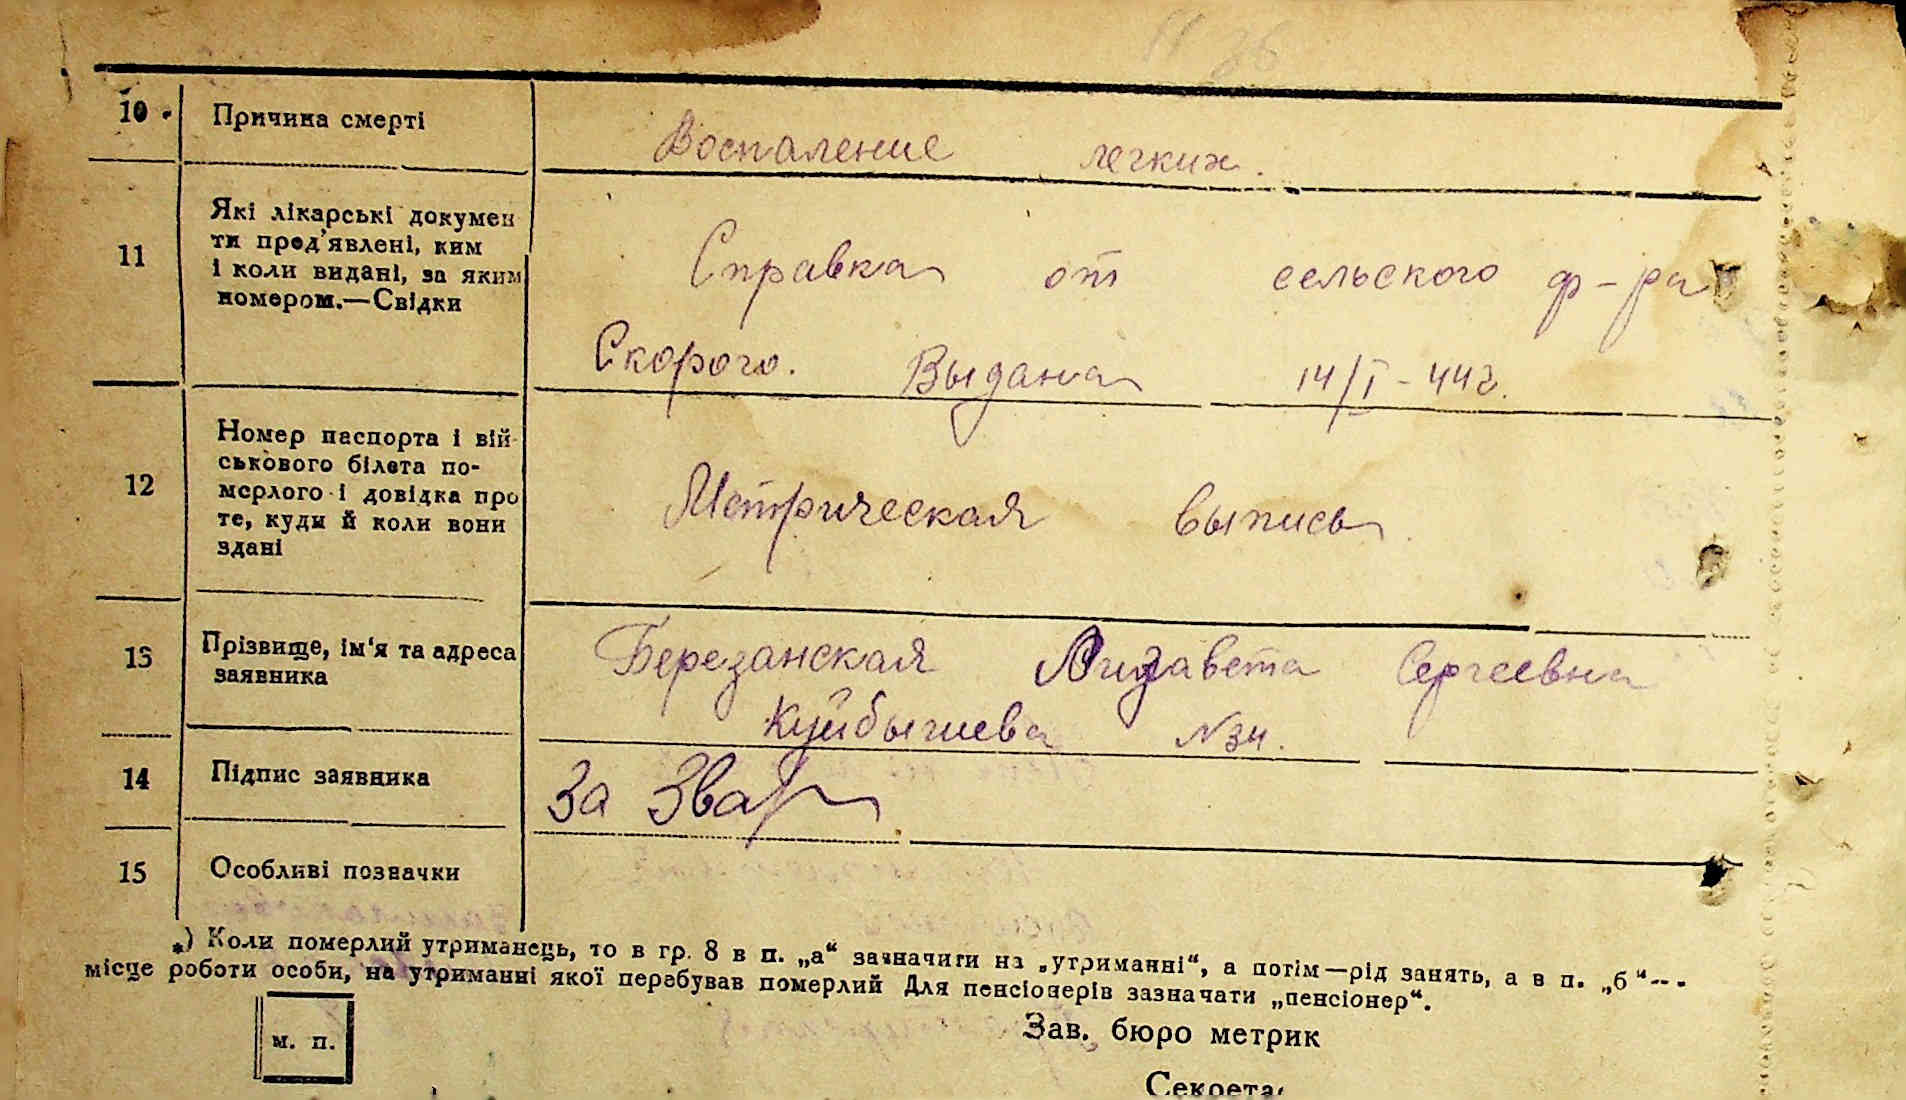 10 Причина смерті Воспаление легких.
11 Які лікарські докумен
ти пред'явлені, ким
і коли видані, за яким
номером.—Свідки
Справка от сельского ф-ра
Скорого. Выдана 14/I-44г.
12 Номер паспорта і вій-
ськового білета по-
мерлого і довідка про
те, куди й коли вони
здані
Метрическая выпись.
13 Прізвище, ім'я та адреса
заявника
Березанская Лизавета Сергеевна
Куйбышева №34.
14 Підпис заявника За
15 Особливі позначки
*) Коли померлий утриманець, то в гр. 8 в п. „а“ зазначити на „утриманні“, а потім—рід занять, а в п. „б“--.
місце роботи особи, на утриманні якої перебував померлий Для пенсіонерів зазначати „пенсіонер“.
м. п.
Зав. бюро метрик
Секрета